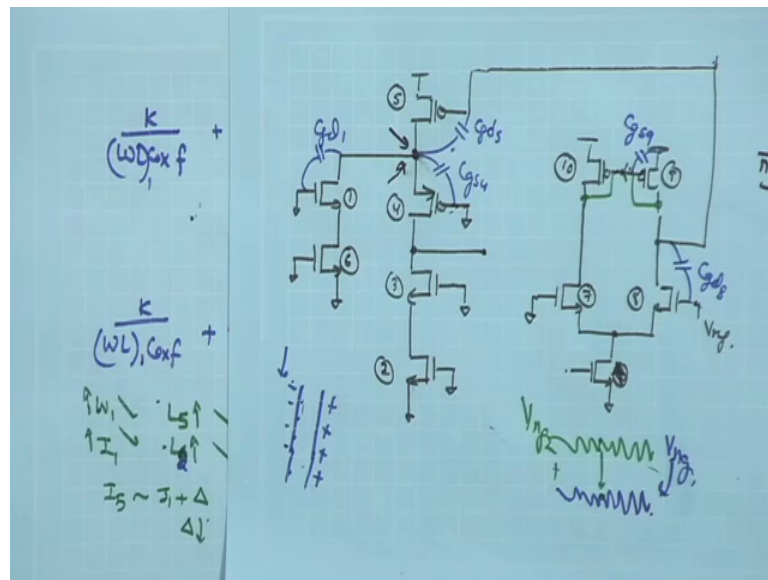 K
(WL)₁ Cox f +
K
(WL)₁ Cox f +
↑W₁ L₅↑
↑I₁ L₂↑
I₅ ~ I₁ + Δ
Δ↓
5
Cgd₁
Cgd₅
Cgs₄
1
4
6
3
2
Cgs₉
10
9
7
8
Cgd₈
Vreg.
Vreg₂
Vreg₁
+
+
+
+
+